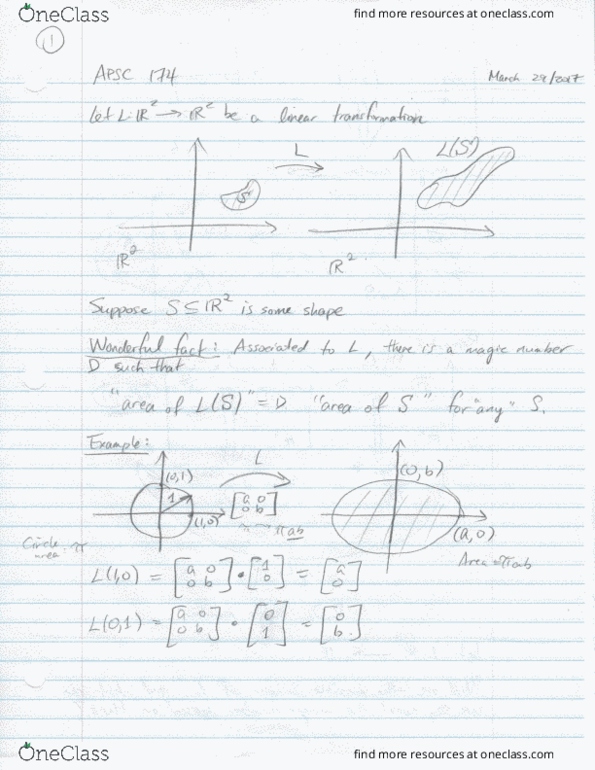 OneClass
find more resources at oneclass.com
1
APSC 174
March 29/2017
Let L: ℝ² → ℝ² be a linear transformation
L
L(S)
S
ℝ²
ℝ²
Suppose S ⊆ ℝ² is some shape
Wonderful fact: Associated to L, there is a magic number
D such that
"area of L(S)" = D "area of S" for "any" S.
Example:
L
(0,1)
(0,b)
1
[a 0
0 b]
(1,0)
πab
(a,0)
Circle
area: π
Area = πab
L(1,0) = [a 0; 0 b] • [1; 0] = [a; 0]
L(0,1) = [a 0; 0 b] • [0; 1] = [0; b]
OneClass
find more resources at oneclass.com